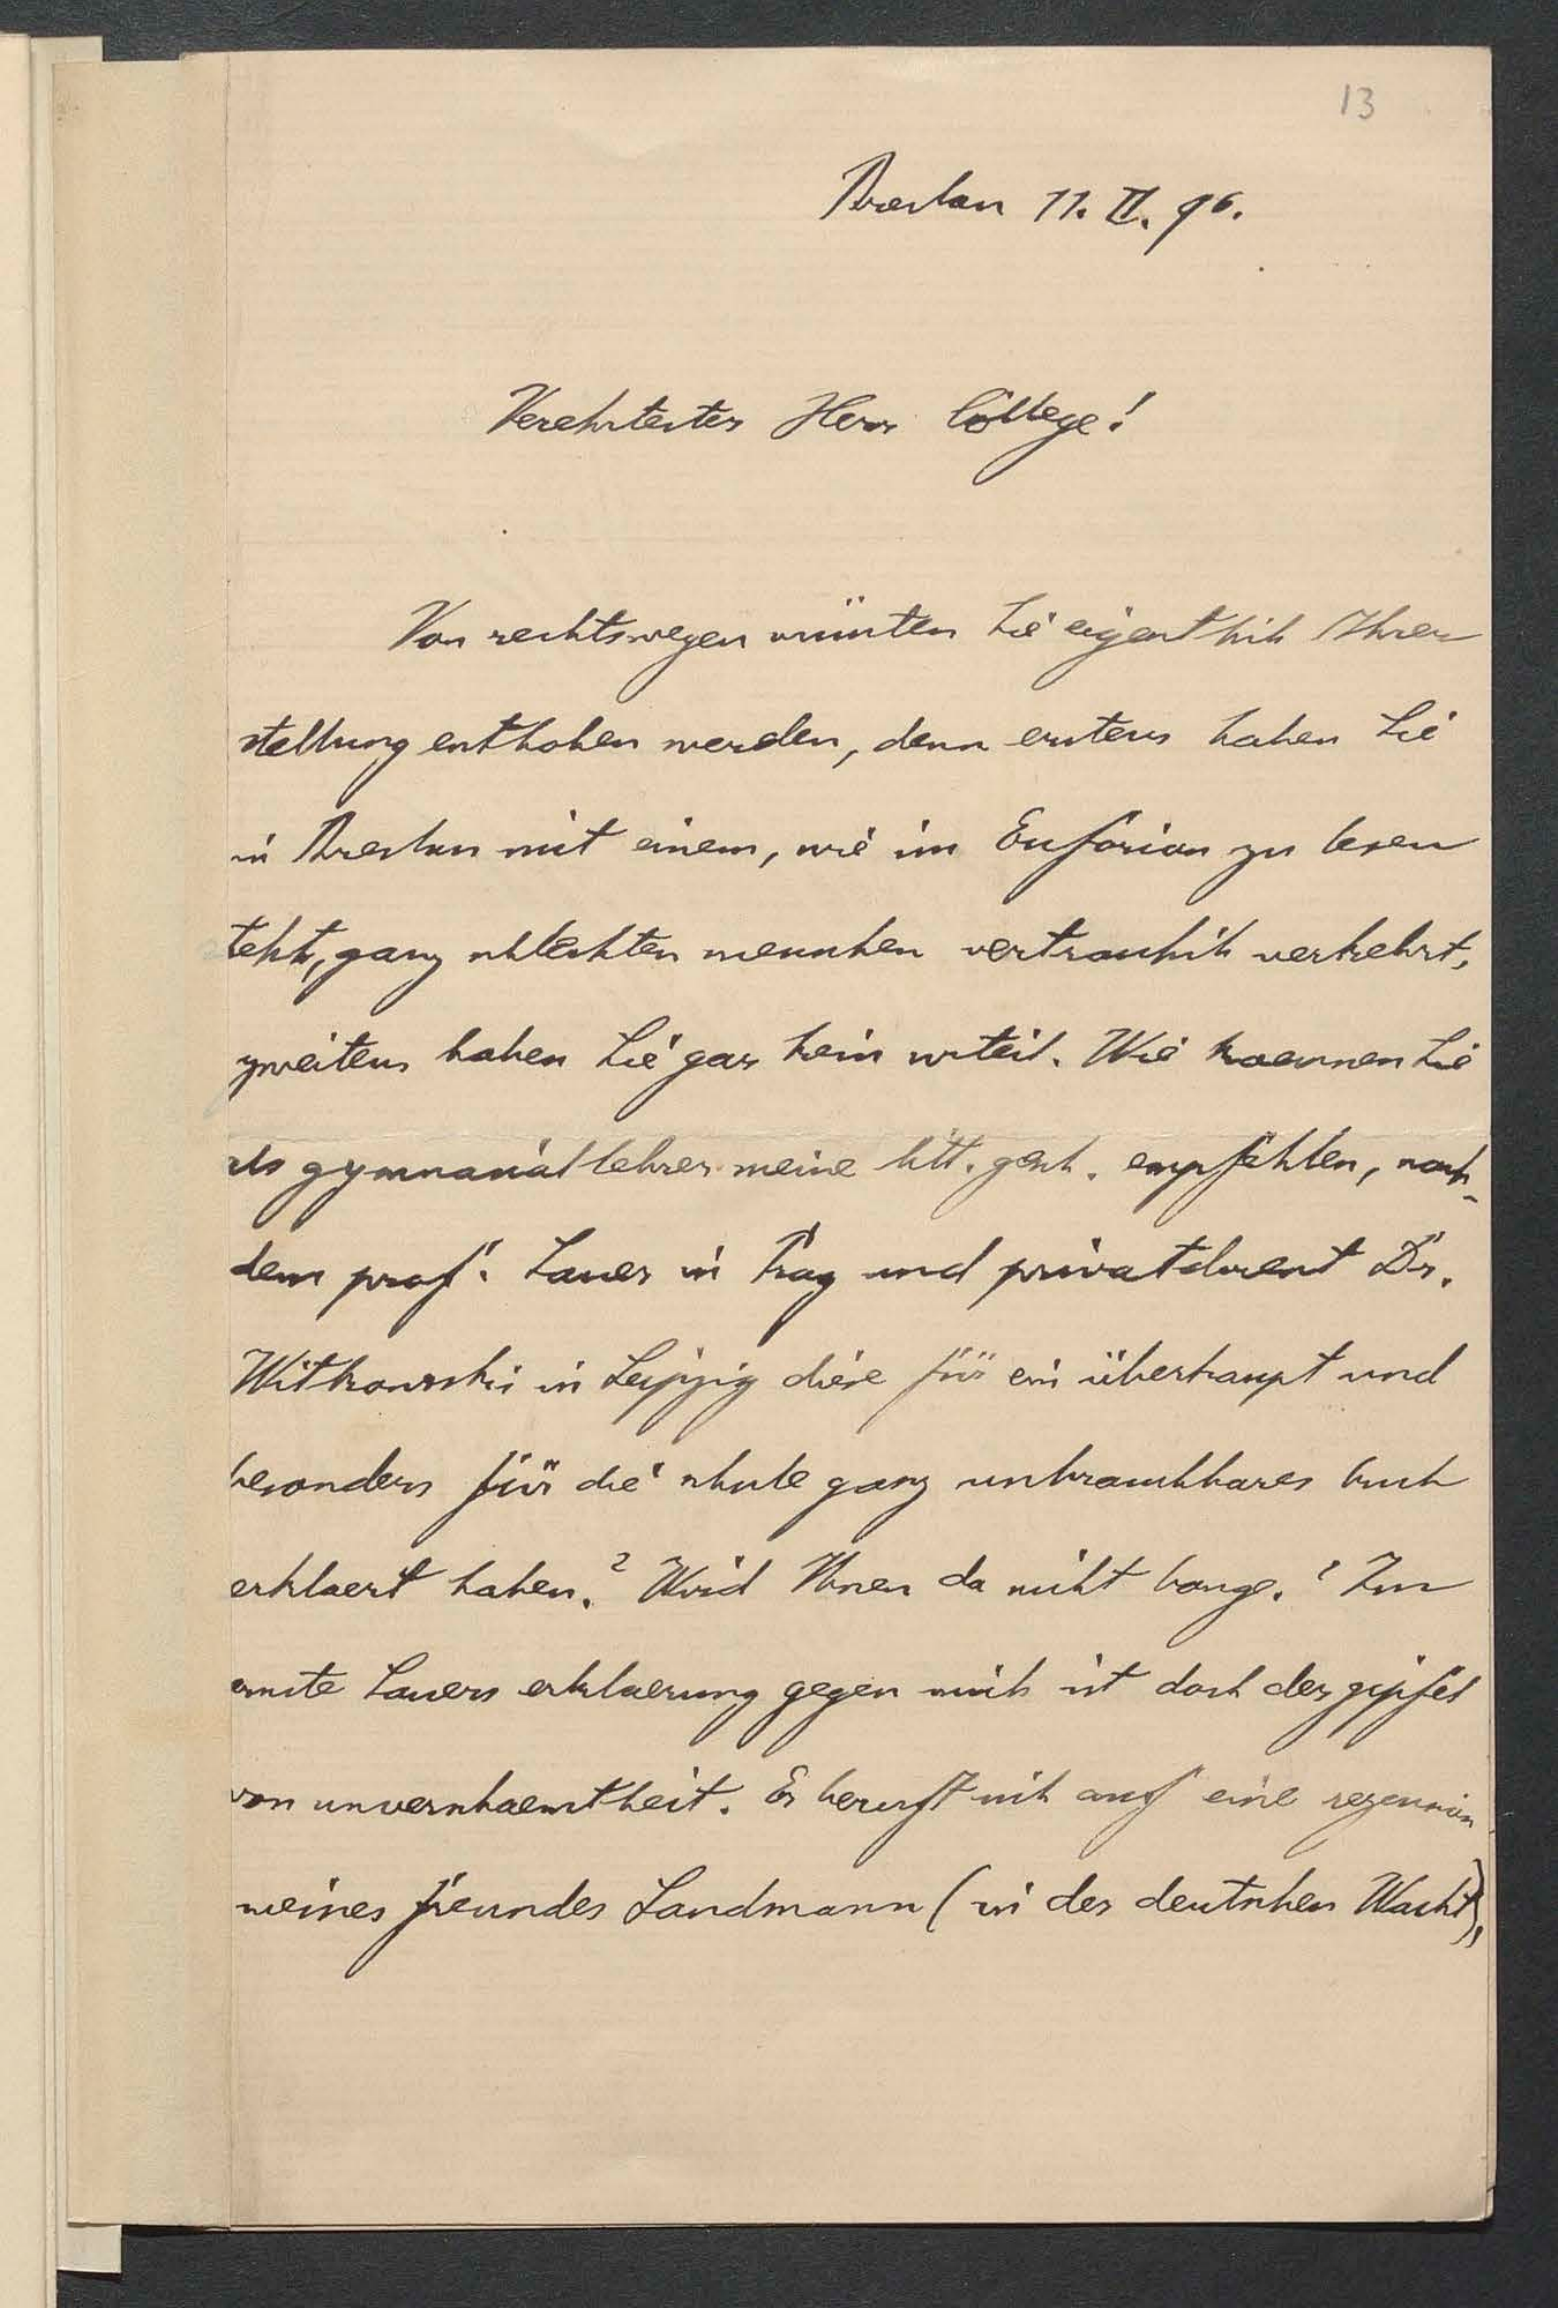 13
Breslau 11. II. 96.
Verehrtester Herr College!
Von rechtswegen müssten Sie eigentlich Ihrer
stellung enthoben werden, denn erstens haben Sie
in Breslau mit einem, wie im Euforion zu lesen
steht, ganz schlechten menschen vertraulich verkehrt,
zweitens haben Sie gar kein urteil. Wie koennen Sie
als gymnasiallehrer meine litt. gesch. empfehlen, nach-
dem prof. Sauer in Prag und privatdocent Dr.
Witkowski in Leipzig diese für ein überhaupt und
besonders für die schule ganz unbrauchbares buch
erklaert haben? Wird Ihnen da nicht bange? Im
ernste Sauers erklaerung gegen mich ist doch der gipfel
von unverschaemtheit. Er beruft sich auf eine rezension
meines freundes Landmann (in der deutschen Wacht),